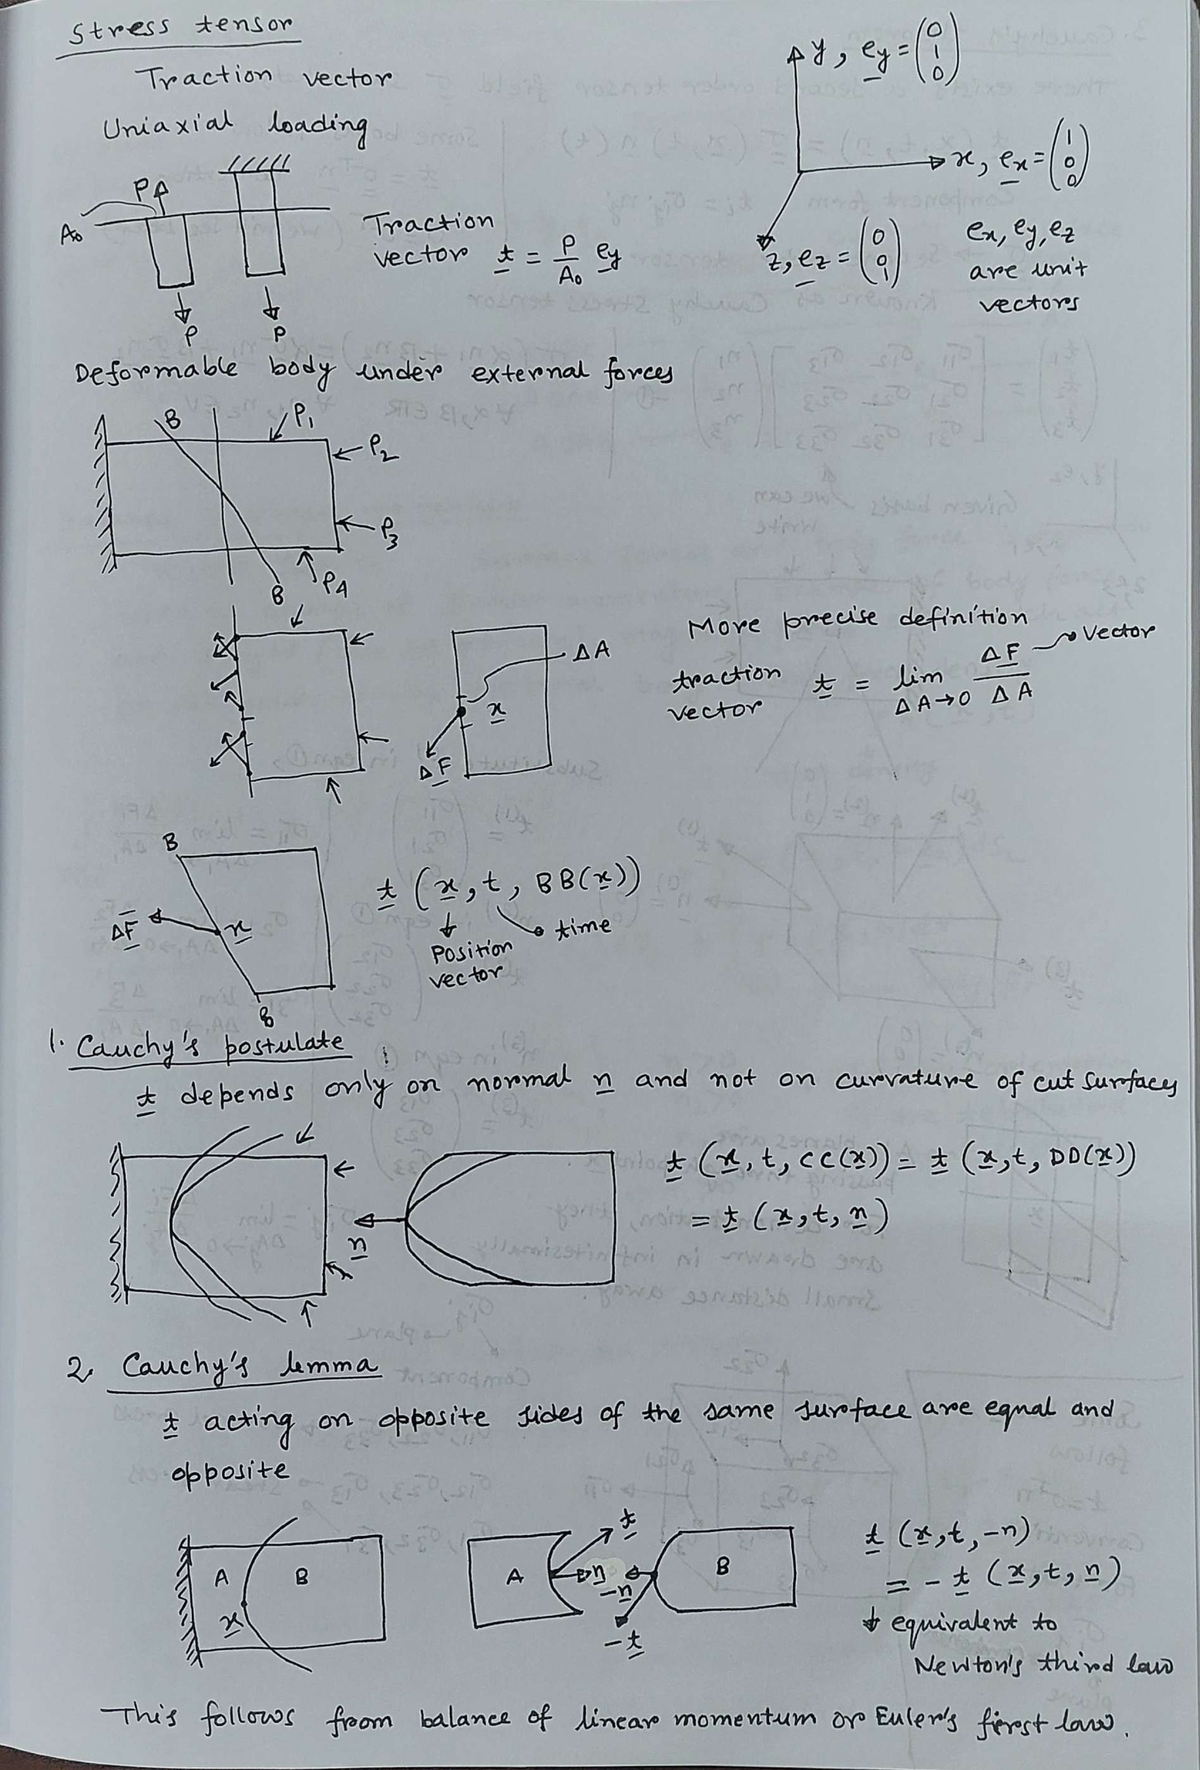 Stress tensor
Traction vector
Uniaxial loading
y, e̲y = (0 1 0)
x, e̲x = (1 0 0)
z, e̲z = (0 0 1)
ex, ey, ez
are unit
vectors
P
A₀
P
P
Traction
vector t̲ = P/A₀ e̲y
Deformable body under external forces
B
P₁
P₂
P₃
P₄
B
ΔA
x̲
ΔF̲
More precise definition
traction
vector t̲ = lim ΔA→0 ΔF̲/ΔA
vector
B
ΔF̲
x̲
B
t̲ (x̲, t, BB(x̲))
Position
vector
time
1. Cauchy's postulate
t̲ depends only on normal n̲ and not on curvature of cut surfaces
n̲
t̲ (x̲, t, CC(x̲)) = t̲ (x̲, t, DD(x̲))
= t̲ (x̲, t, n̲)
2. Cauchy's lemma
t̲ acting on opposite sides of the same surface are equal and
opposite
A B
x̲
A
t̲
n̲
-n̲
-t̲
B
t̲ (x̲, t, -n)
= - t̲ (x̲, t, n̲)
equivalent to
Newton's third law
This follows from balance of linear momentum or Euler's first law.